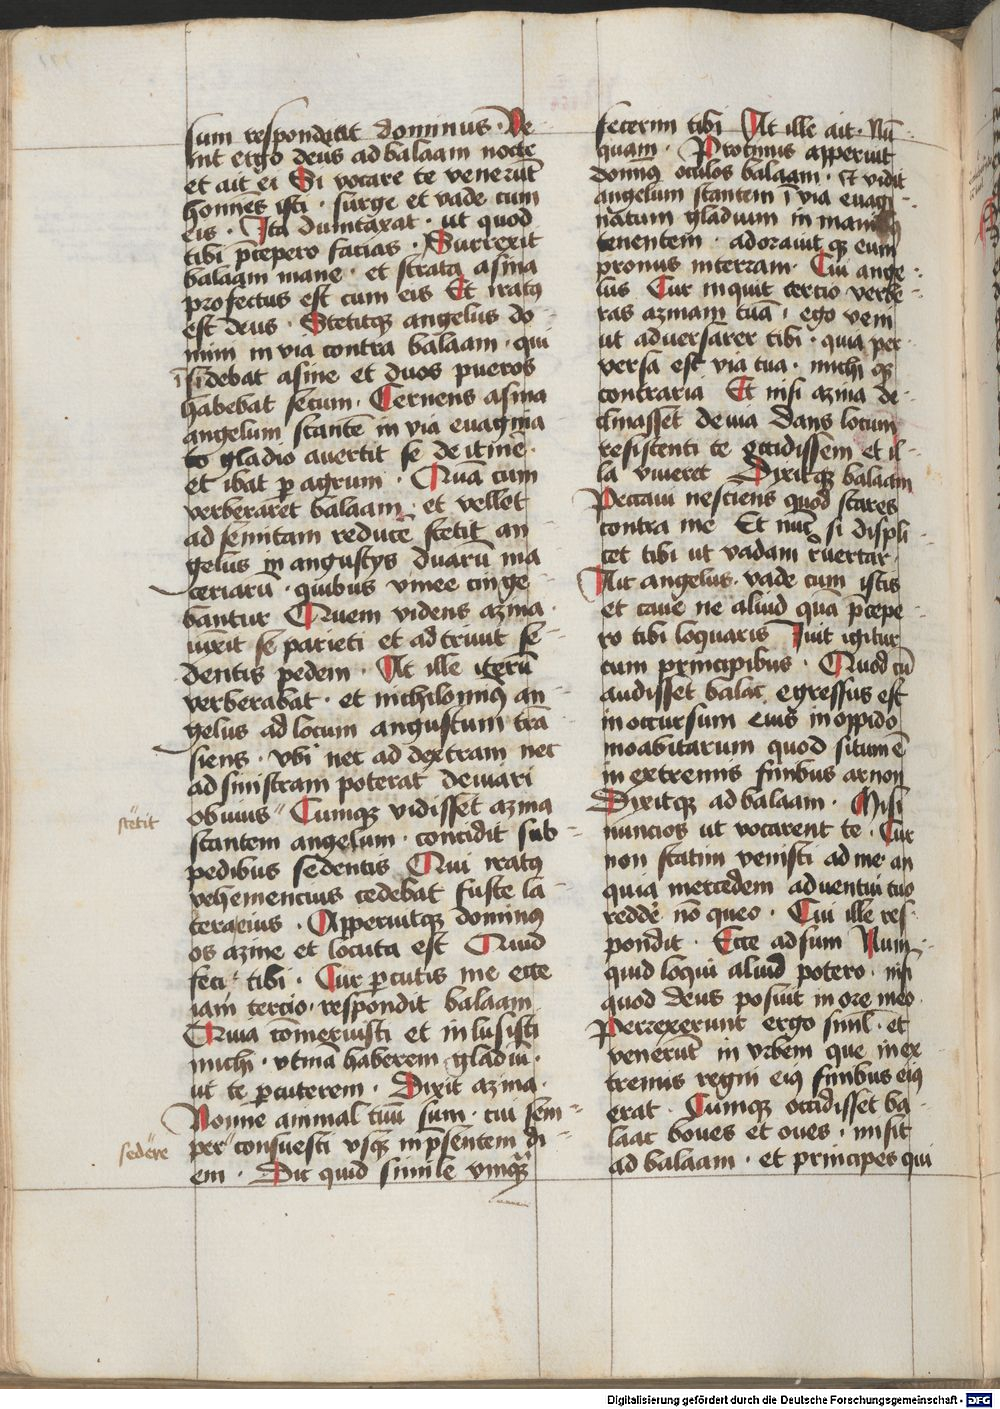 sum respondeat dominus · Ve
nit ergo deus ad balaam nocte
et ait ei Si vocare te venerūt
homines isti · surge et vade cum
eis · Ita dumtaxat · ut quod
tibi p̄cepero facias · Surrexit
balaam mane · et strata asina
profectus est cum eis Et iratꝰ
est deus · Stetitqꝫ angelus do
mini in via contra balaam · qui
īsidebat asine et duos pueros
habebat secum · Cernens asina
angelum stantē in via euagina
to gladio auertit se de itinē ·
et ibat ꝑ agrum · Quā cum
verberaret balaam · et vellet
ad semitam reducē stetit an
gelus in angustys duarū ma
ceriarū · quibus vinee cinge
bantur Quem videns azina
iunxit se parieti et adtriuit se
dentis pedem · At ille iterū
verberabat · et nichilominꝰ an
gelus ad locum angustum trā
siens · vbi nec ad dextram nec
ad sinistram poterat deuiari
obuius " Cumqꝫ vidisset azina
stetit
stantem angelum · concidit sub
pedibus sedentis Qui iratꝰ
vehemencius cedebat fuste la
tera eius · Apperuitqꝫ dominꝰ
os azine et locuta est Quid
feci tibi · Cur ꝑcutis me ecce
iam tercio · respondit balaam
Quia cōmeruisti et inlusisti
michi · vtina haberem gladiū ·
ut te ꝑcuterem · Dixit azina ·
Nonne animal tuū sum · cui sem
per " consuesti vsqꝫ in p̄sentem di
sedēre
em · Dic quid simile vmqꝫ
fecerim tibi At ille ait · Nū
quam · Protinus apperuit
domīnꝰ oculos balaam · Et vidit
angelum stantem ī via euagi
natum gladium in manu
tenentem · adorauit qꝫ eum
pronus in terram · Cui ange
lus Cur inquit tercio verbe
ras azinam tuā · ego veni
ut aduersarer tibi · quia per
versa est via tua · michi qꝫ
contraria Et nisi azina de
clinasset de via dans locum
resistenti te occidissem et il
la viueret Dyxitqꝫ balaam
Peccaui nesciens quod stares
contra me Et nūc si displi
cet tibi ut vadam r̄uertar ·
Ait angelus · vade cum istis
et caue ne aliud quā p̄cepe
ro tibi loquaris Iuit igitur
cum principibus · Quod cū
audisset balac egressus est
in occursum eius in oppido
moabitarum quod situm ē
in extremis finibus arnon
Dyxitqꝫ ad balaam · Misi
nuncios ut vocarent te · Cur
non statim venisti ad me · an
quia mercedem aduentui tuo
reddē nō queo · Cui ille res
pondit · Ecce adsum Num
quid loqui aliud potero · nisi
quod deus posuit in ore meo
Perrexerunt ergo simul · et
venerūt in vrbem que in ex
tremis regni eiꝰ finibus eiꝰ
erat · Cumqꝫ occidisset ba
laac boues et oues · misit
ad balaam · et principes qui
Digitalisierung gefördert durch die Deutsche Forschungsgemeinschaft - DFG